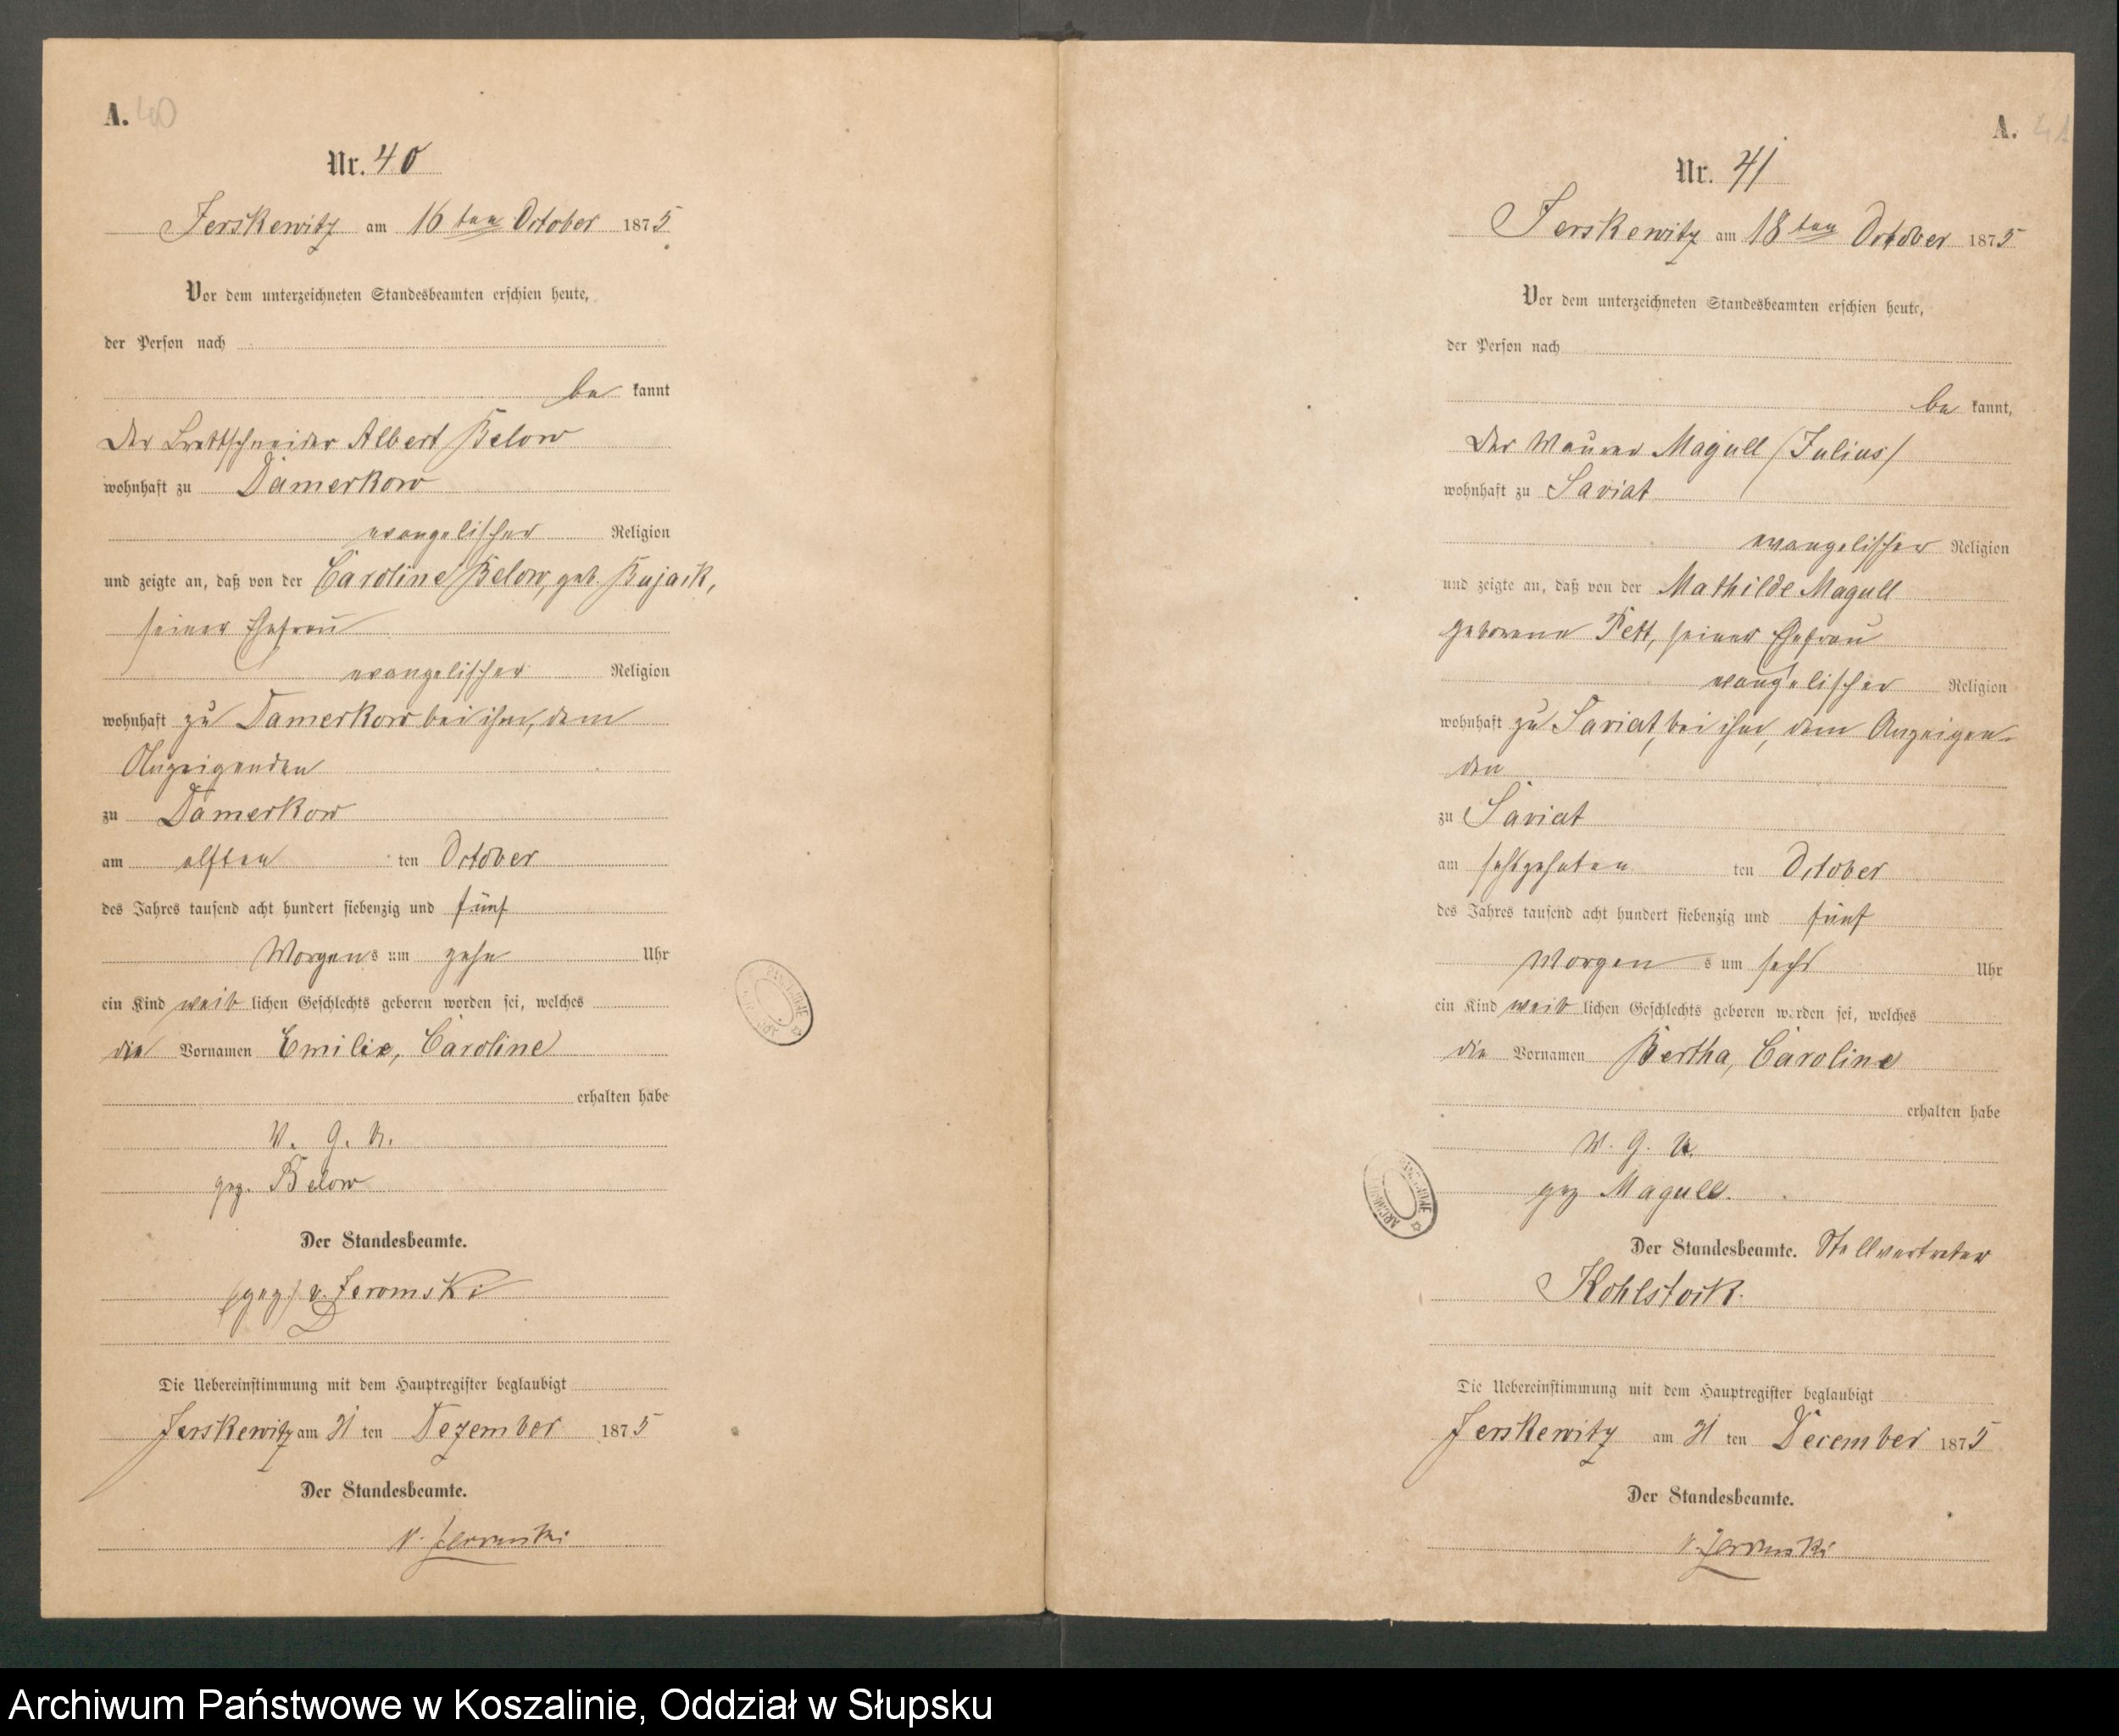 A. 40
Nr. 40
Jerskewitz am 16ten October 1875
Vor dem unterzeichneten Standesbeamten erschien heute,
der Person nach
be kannt
Der Brettschneider Albert Below
wohnhaft zu Damerkow
evangelischer Religion
und zeigte an, daß von der Caroline Below, geb. Bujack,
seiner Ehefrau
evangelischer Religion
wohnhaft zu Damerkow bei ihm, dem
Anzeigenden
zu Damerkow
am elften ten October
des Jahres tausend acht hundert siebenzig und fünf
Morgens um zehn Uhr
ein Kind weib lichen Geschlechts geboren worden sei, welches
die Vornamen Emilie, Caroline
erhalten habe
V. g. u.
gez. Below
Der Standesbeamte.
(gez) v. Jeromski
Die Uebereinstimmung mit dem Hauptregister beglaubigt
Jerskewitz am 31 ten Dezember 1875
Der Standesbeamte.
v. Jeromski
A. 41
Nr. 41
Jerskewitz am 18ten October 1875
Vor dem unterzeichneten Standesbeamten erschien heute,
der Person nach
be kannt,
Der Maurer Magull (Julius)
wohnhaft zu Saviat
evangelischer Religion
und zeigte an, daß von der Mathilde Magull
geborene Pett, seiner Ehefrau
evangelischer Religion
wohnhaft zu Saviat, bei ihm, dem Anzeigen-
den
zu Saviat
am sechszehnten ten October
des Jahres tausend acht hundert siebenzig und fünf
Morgen s um sechs Uhr
ein Kind weib lichen Geschlechts geboren worden sei, welches
die Vornamen Bertha, Caroline
erhalten habe
V. g. u.
gez Magull.
Der Standesbeamte. Stellvertreter
Kohlstock.
Die Uebereinstimmung mit dem Hauptregister beglaubigt
Jerskewitz am 31 ten December 1875
Der Standesbeamte.
v. Jeromski
Archiwum Państwowe w Koszalinie, Oddział w Słupsku